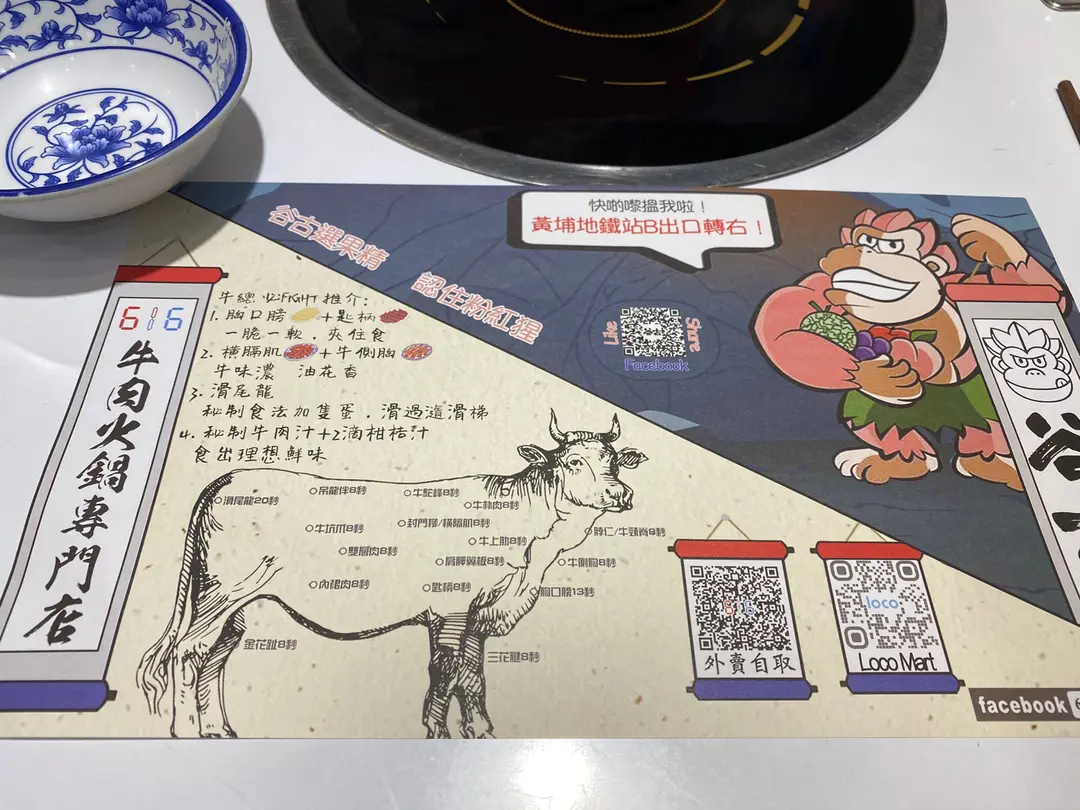 快啲嚟搵我啦！
黃埔地鐵站B出口轉右！
谷古選果精
認住粉紅猩
Like
Share
Facebook
6006
牛肉火鍋專門店
牛總必FIGHT推介：
1. 胸口膀+匙柄
一脆一軟，夾住食
2. 橫膈肌+牛側胸
牛味濃 油花香
3. 滑尾龍
秘制食法加隻蛋，滑過這滑梯
4. 秘制牛肉汁+2滴柑桔汁
食出理想鮮味
滑尾龍20秒
吊龍伴8秒
牛駝峰8秒
牛林肉8秒
牛坑爪8秒
封門柳/橫隔肌8秒
脖仁/牛頸脊8秒
雙層肉8秒
牛上肋8秒
肩胛翼板8秒
牛側胸8秒
內裙肉8秒
匙柄8秒
胸口膀13秒
金花趾8秒
三花腱8秒
外賣自取
loco
Loco Mart
谷
facebook